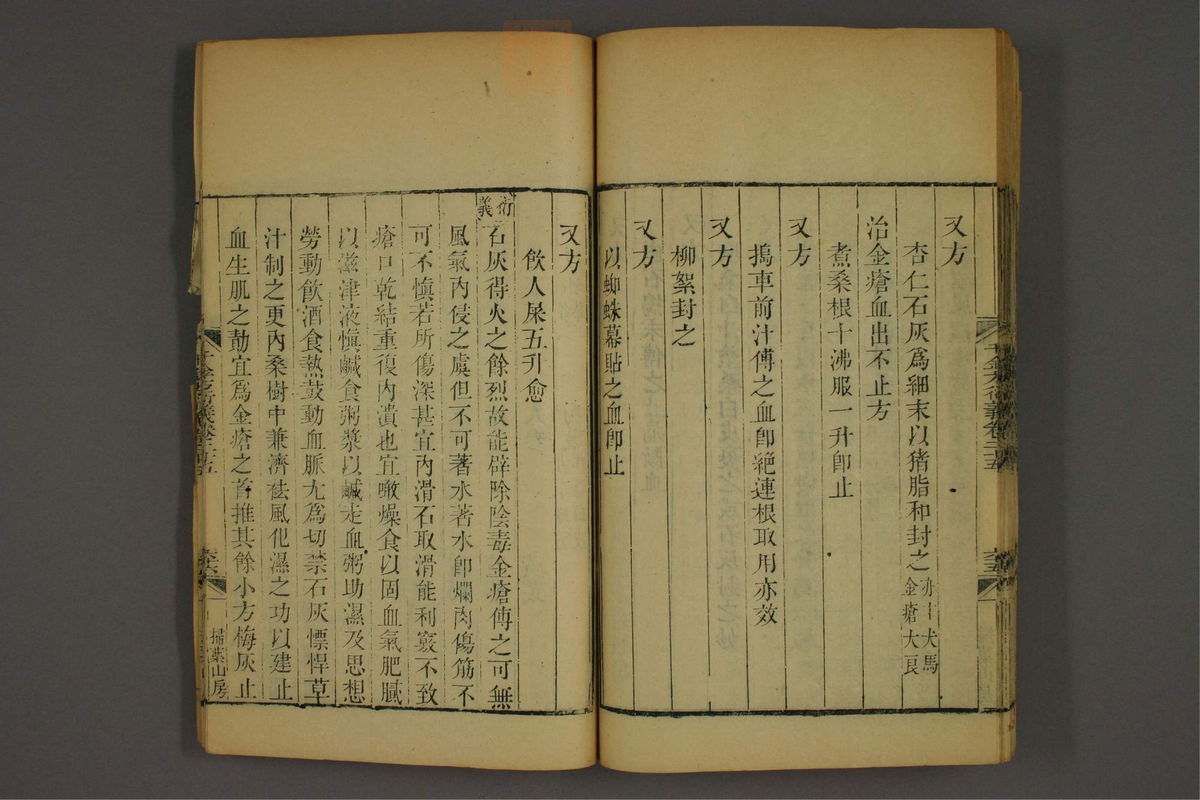 又方
杏仁石灰爲細末以猪脂和封之亦主犬馬金瘡大良
治金瘡血出不止方
煮桑根十沸服一升卽止
又方
擣車前汁傅之血卽絕連根取用亦效
又方
柳絮封之
又方
以蜘蛛幕貼之血卽止
又方
飲人屎五升愈
衍義
石灰得火之餘烈故能辟除陰毒金瘡傅之可無
風氣內侵之虞但不可著水著水卽爛肉傷筋不
可不慎若所傷深甚宜內滑石取滑能利竅不致
瘡口乾結重復內潰也宜噉燥食以固血氣肥膩
以滋津液慎鹹食粥漿以鹹走血粥助濕及思想
勞動飲酒食熱鼓動血脈尤爲切禁石灰慓悍草
汁制之更內桑樹中兼濟祛風化濕之功以建止
血生肌之勣宜爲金瘡之首推其餘小方梅灰止
千金方衍義卷二十五
掃葉山房